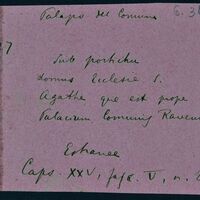 Palazzo del Comune
6. 3
7
Sub porticu
Domus Ecclesie S.
Agathe que est prope
Palacium Comunis Raven
Estranee
Caps. XXV, fasc. V, n.